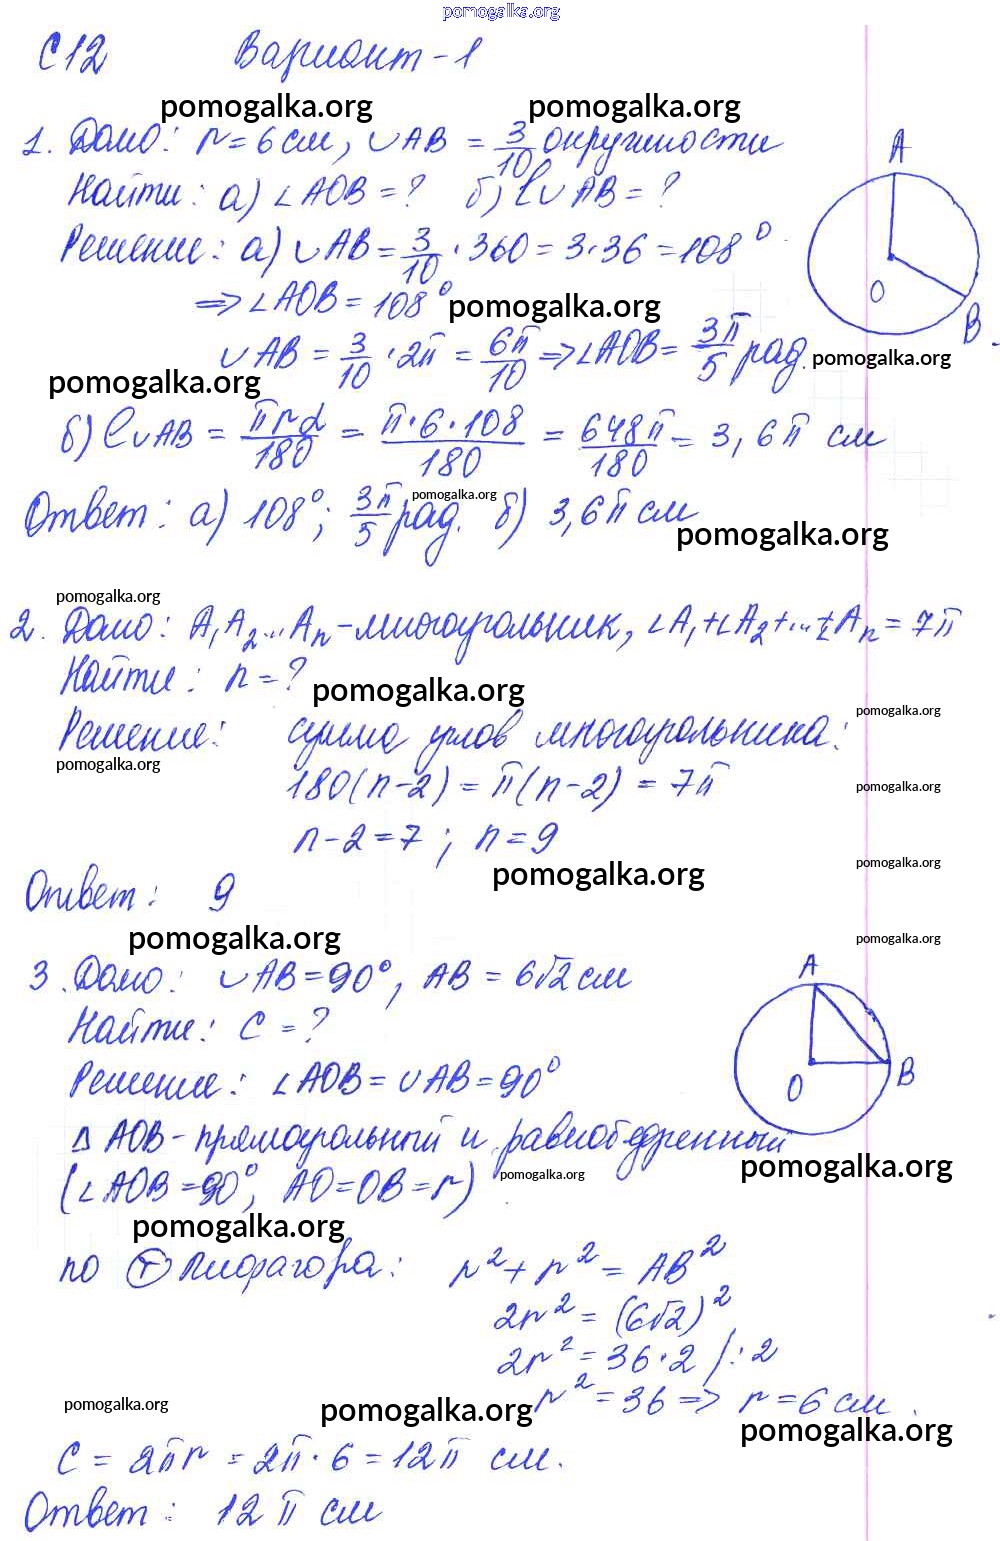 pomogalka.org
С12 Вариант-1
pomogalka.org pomogalka.org
1. Дано: r=6 см, ∪AB = 3/10 окружности
Найти: а) ∠AOB = ? б) l∪AB = ?
Решение: а) ∪AB = 3/10 · 360 = 3·36 = 108°
⇒ ∠AOB = 108°
pomogalka.org
∪AB = 3/10 · 2π = 6π/10 ⇒ ∠AOB = 3π/5 рад.
pomogalka.org
pomogalka.org
б) l∪AB = πrα/180 = π·6·108/180 = 648π/180 = 3,6π см
Ответ: а) 108°; 3π/5 рад. б) 3,6π см
pomogalka.org
pomogalka.org
A
O
B
pomogalka.org
2. Дано: A₁A₂...Aₙ-многоугольник, ∠A₁+∠A₂+...+∠Aₙ = 7π
Найти: n = ?
pomogalka.org
pomogalka.org
Решение: сумма углов многоугольника:
pomogalka.org
180(n-2) = π(n-2) = 7π
pomogalka.org
n-2=7; n=9
pomogalka.org
pomogalka.org
Ответ: 9
pomogalka.org
pomogalka.org
3. Дано: ∪AB=90°, AB = 6√2 см
Найти: C = ?
Решение: ∠AOB = ∪AB = 90°
A
O
B
∆ AOB - прямоугольный и равнобедренный
pomogalka.org
(∠AOB=90°, AO=OB=r)
pomogalka.org
pomogalka.org
по Т Пифагора: r² + r² = AB²
2r² = (6√2)²
2r² = 36·2 /:2
r² = 36 ⇒ r = 6 см.
pomogalka.org
pomogalka.org
pomogalka.org
C = 2πr = 2π·6 = 12π см.
Ответ: 12π см